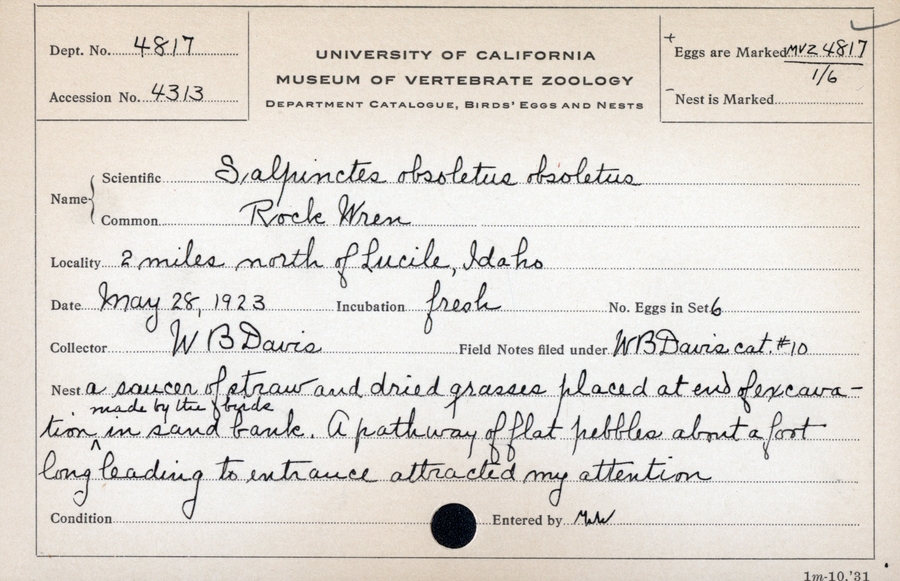 Dept. No. 4817
Accession No. 4313
UNIVERSITY OF CALIFORNIA
MUSEUM OF VERTEBRATE ZOOLOGY
DEPARTMENT CATALOGUE, BIRDS' EGGS AND NESTS
+ Eggs are Marked MVZ 4817
1/6
- Nest is Marked
Name { Scientific Salpinctes obsoletus obsoletus
Common Rock Wren
Locality 2 miles north of Lucile, Idaho
Date May 28, 1923 Incubation fresh No. Eggs in Set 6
Collector W B Davis Field Notes filed under WBDavis cat. #10
Nest a saucer of straw and dried grasses placed at end of excava-
made by the birds
tion ^ in sand bank. A pathway of flat pebbles about a foot
long leading to entrance attracted my attention
Condition Entered by
1m-10,'31